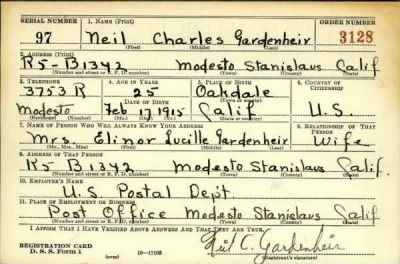 SERIAL NUMBER 1. NAME (Print) ORDER NUMBER
97 Neil Charles Gardenheir 3128
(First) (Middle) (Last)
2. ADDRESS (Print)
R5-B1342 Modesto Stanislaus Calif
(Number and street or R. F. D. number) (Town) (County) (State)
3. TELEPHONE 4. AGE IN YEARS 5. PLACE OF BIRTH 6. COUNTRY OF CITIZENSHIP
3753 R 25 Oakdale
DATE OF BIRTH (Town or county)
Modesto Feb 1915 Calif U.S.
(Exchange) (Mo.) (Day) (Yr.) (State or country)
7. NAME OF PERSON WHO WILL ALWAYS KNOW YOUR ADDRESS 8. RELATIONSHIP OF THAT PERSON
Mrs. Elinor Lucille Gardenheir Wife
(Mr., Mrs., Miss) (First) (Middle) (Last)
9. ADDRESS OF THAT PERSON
R5 B1342 Modesto Stanislaus Calif.
(Number and street or R. F. D. number) (Town) (County) (State)
10. EMPLOYER'S NAME
U.S. Postal Dept
11. PLACE OF EMPLOYMENT OR BUSINESS
Post Office Modesto Stanislaus Calif
(Number and street or R. F. D. number) (Town) (County) (State)
I AFFIRM THAT I HAVE VERIFIED ABOVE ANSWERS AND THAT THEY ARE TRUE.
REGISTRATION CARD Neil C. Gardenheir
D. S. S. Form 1 (over) 16-17105 (Registrant's signature)